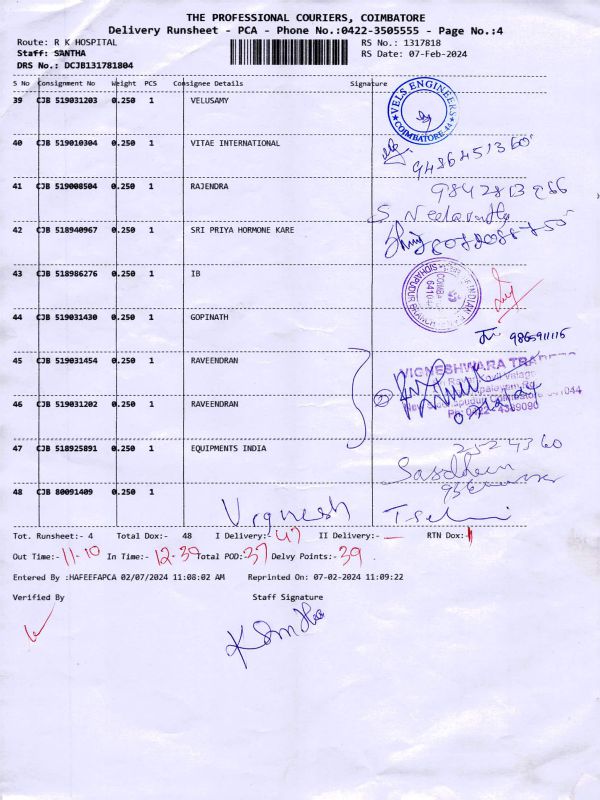 THE PROFESSIONAL COURIERS, COIMBATORE
Delivery Runsheet - PCA - Phone No.:0422-3505555 - Page No.:4
Route: R K HOSPITAL
RS No.: 1317818
Staff: SANTHA
RS Date: 07-Feb-2024
DRS No.: DCJB131781804
S No Consignment No Weight PCS Consignee Details Signature
39 CJB 519031203 0.250 1 VELUSAMY
VELS ENGINEERS
COIMBATORE-44
40 CJB 519010304 0.250 1 VITAE INTERNATIONAL
9486451360
41 CJB 519008504 0.250 1 RAJENDRA
42 CJB 518940967 0.250 1 SRI PRIYA HORMONE KARE
43 CJB 518986276 0.250 1 IB
44 CJB 519031430 0.250 1 GOPINATH
45 CJB 519031454 0.250 1 RAVEENDRAN
VIGNESHWARA
46 CJB 519031202 0.250 1 RAVEENDRAN
47 CJB 518925891 0.250 1 EQUIPMENTS INDIA
2524360
48 CJB 80091409 0.250 1
Vignesh
Tot. Runsheet:- 4 Total Dox:- 48 I Delivery:- 47 II Delivery:- — RTN Dox:- 1
Out Time:- 11-10 In Time:- 12-39 Total POD: 37 Delvy Points:- 39
Entered By :HAFEEFAPCA 02/07/2024 11:08:02 AM Reprinted On: 07-02-2024 11:09:22
Verified By Staff Signature